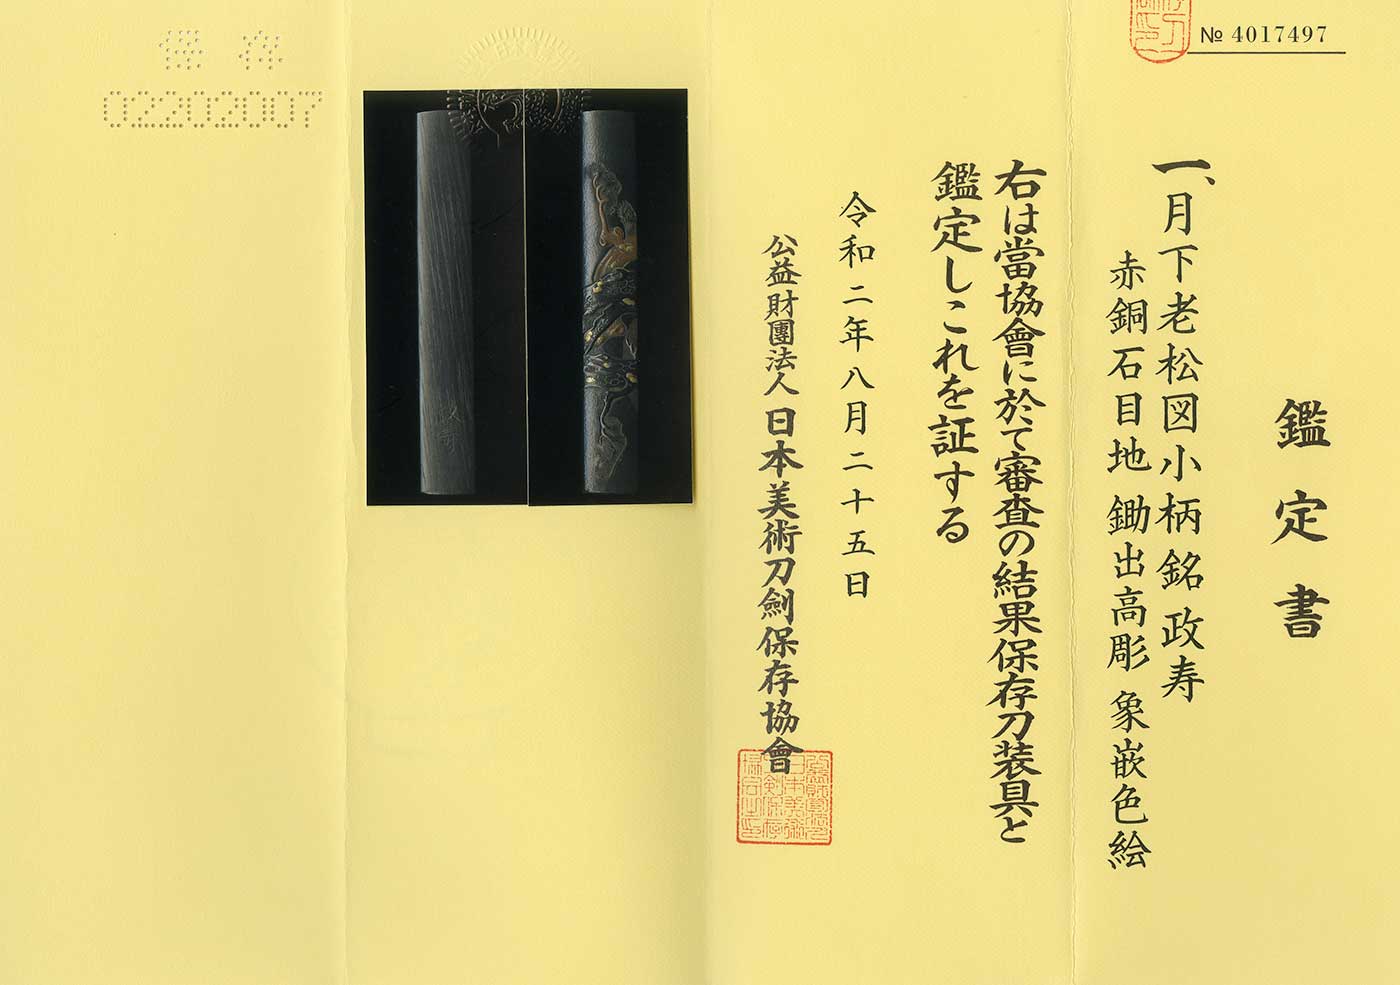 № 4017497
鑑定書
一、月下老松図小柄 銘 政寿
赤銅石目地 鋤出高彫 象嵌色絵
右は當協會に於て審査の結果保存刀装具と
鑑定しこれを証する
令和二年八月二十五日
公益財團法人 日本美術刀劍保存協會
保存
02202007